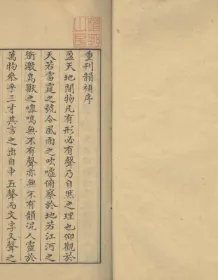 重刊韻補序
盈天地間物凡有形必有聲乃自然之理也仰觀於
天若雷霆之號令風雨之吹噓俯察於地若江河之
衝激鳥獸之嘷鳴無不有聲亦無不有韻況人靈於
萬物參乎三才其言之出自中五聲而文字又聲之